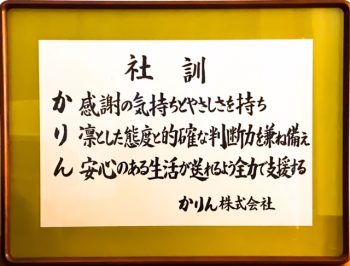 社訓
か 感謝の気持ちとやさしさを持ち
り 凛とした態度と的確な判断力を兼ね備え
ん 安心のある生活が送れるよう全力で支援する
かりん株式会社